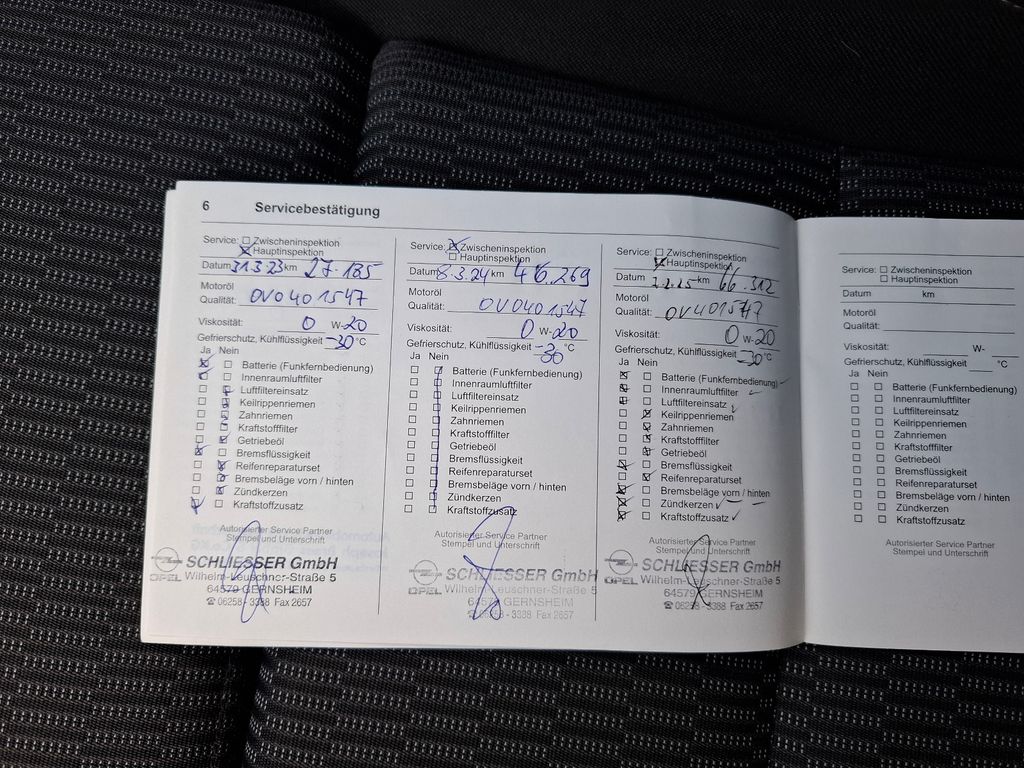 6 Servicebestätigung
Service: Zwischeninspektion
Hauptinspektion
Datum 31.3.23 km 27.185
Motoröl
Qualität: OV0401547
Viskosität: 0 W-20
Gefrierschutz, Kühlflüssigkeit -30 °C
Ja Nein
Batterie (Funkfernbedienung)
Innenraumluftfilter
Luftfiltereinsatz
Keilrippenriemen
Zahnriemen
Kraftstofffilter
Getriebeöl
Bremsflüssigkeit
Reifenreparaturset
Bremsbeläge vorn / hinten
Zündkerzen
Kraftstoffzusatz
Autorisierter Service Partner
Stempel und Unterschrift
OPEL SCHLIESSER GmbH
Wilhelm-Leuschner-Straße 5
64579 GERNSHEIM
☎ 06258 - 3388 Fax 2657
Service: Zwischeninspektion
Hauptinspektion
Datum 8.3.24 km 46.269
Motoröl
Qualität: OV0401547
Viskosität: 0 W-20
Gefrierschutz, Kühlflüssigkeit -30 °C
Ja Nein
Batterie (Funkfernbedienung)
Innenraumluftfilter
Luftfiltereinsatz
Keilrippenriemen
Zahnriemen
Kraftstofffilter
Getriebeöl
Bremsflüssigkeit
Reifenreparaturset
Bremsbeläge vorn / hinten
Zündkerzen
Kraftstoffzusatz
Autorisierter Service Partner
Stempel und Unterschrift
OPEL SCHLIESSER GmbH
Wilhelm-Leuschner-Straße 5
64579 GERNSHEIM
☎ 06258 - 3388 Fax 2657
Service: Zwischeninspektion
Hauptinspektion
Datum km 66.312
Motoröl
Qualität:
Viskosität: 0 W-20
Gefrierschutz, Kühlflüssigkeit -30 °C
Ja Nein
Batterie (Funkfernbedienung)
Innenraumluftfilter
Luftfiltereinsatz
Keilrippenriemen
Zahnriemen
Kraftstofffilter
Getriebeöl
Bremsflüssigkeit
Reifenreparaturset
Bremsbeläge vorn / hinten
Zündkerzen
Kraftstoffzusatz
Autorisierter Service Partner
Stempel und Unterschrift
OPEL SCHLIESSER GmbH
Wilhelm-Leuschner-Straße 5
64579 GERNSHEIM
☎ 06258 - 3388 Fax 2657
Service: Zwischeninspektion
Hauptinspektion
Datum km
Motoröl
Qualität:
Viskosität: W-
Gefrierschutz, Kühlflüssigkeit °C
Ja Nein
Batterie (Funkfernbedienung)
Innenraumluftfilter
Luftfiltereinsatz
Keilrippenriemen
Zahnriemen
Kraftstofffilter
Getriebeöl
Bremsflüssigkeit
Reifenreparaturset
Bremsbeläge vorn / hinten
Zündkerzen
Kraftstoffzusatz
Autorisierter Service Partner
Stempel und Unterschrift